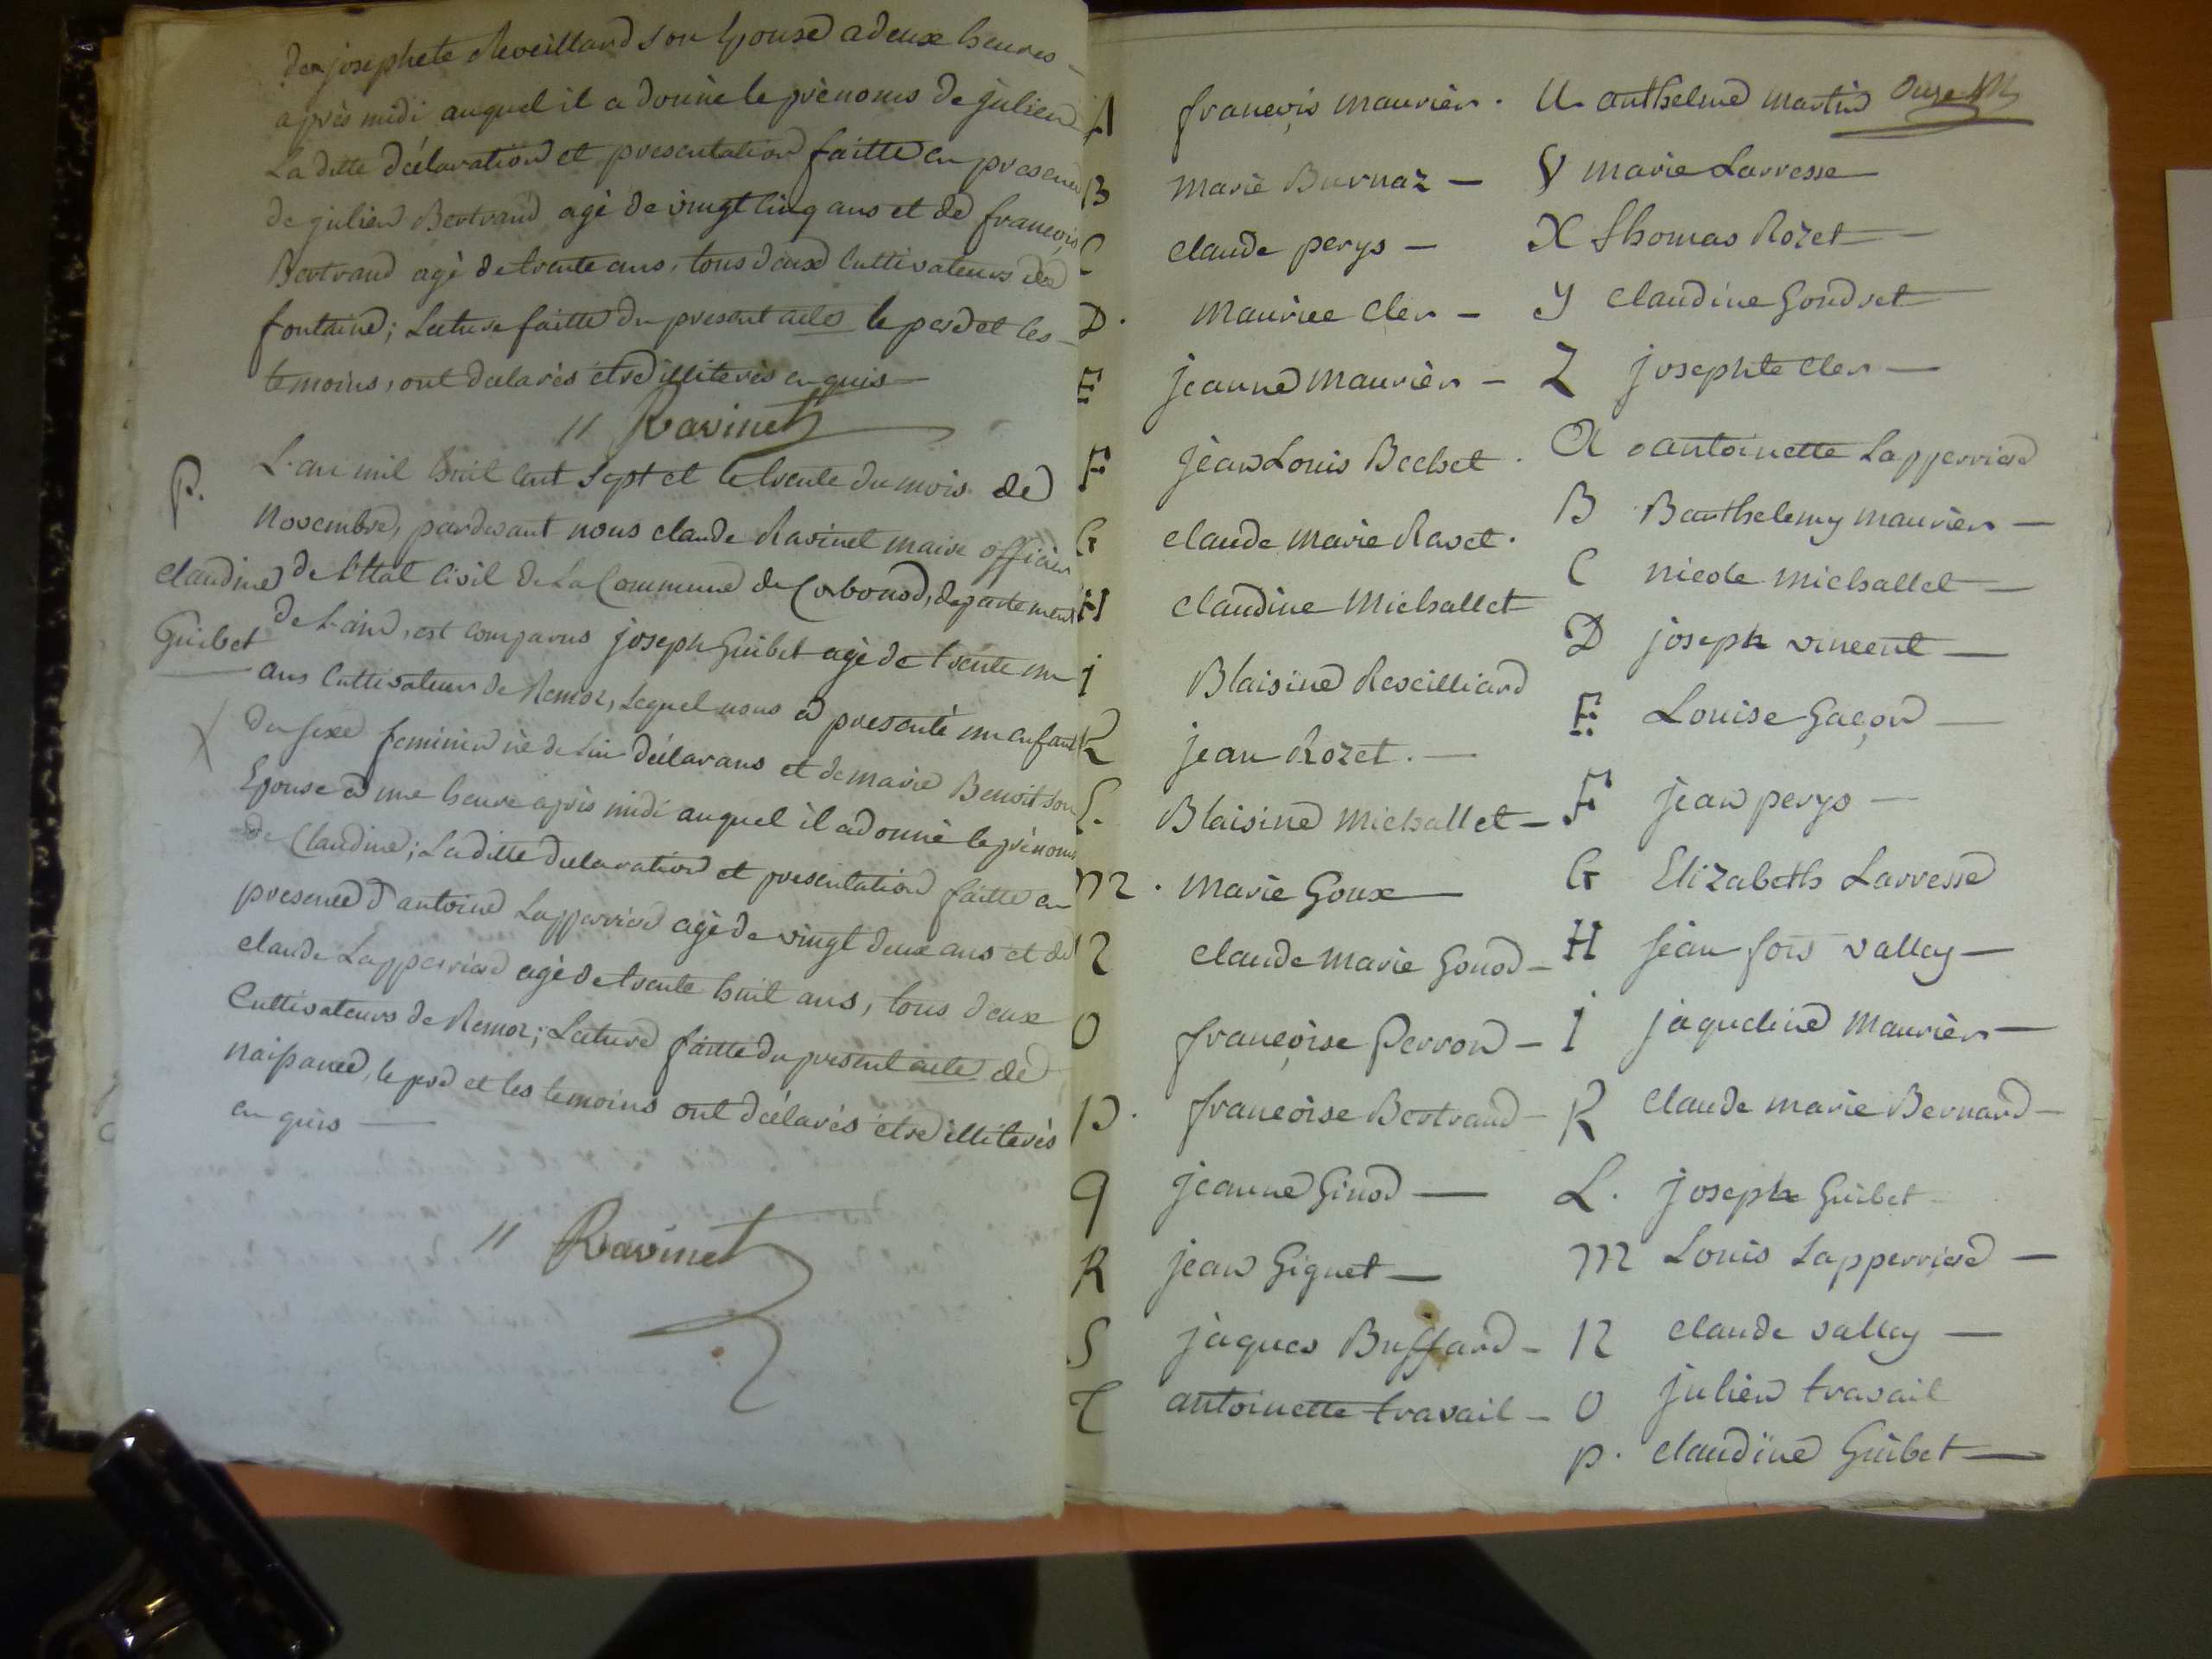 de josephete Reveillard son Epouse a deux heures
après midi auquel il a donné le prènoms de julien
La ditte déclaration et presentation faitte en presence
de julien Bertrand agé de vingt cinq ans et de françois
Bertrand agé de trente ans, tous deux Cultivateurs de
fontaine; Lecture faitte du present acte le pere et les
temoins, ont declarés être illiterés enquis
" Ravinet
P.
L'an mil huit cent sept et le trente du mois de
Novembre, pardevant nous claude Ravinet maire officier
de l'Etat Civil de La Commune de Corbonod, departement
claudine
Guibet
de L'ain, est comparus joseph Guibet agé de trente un
ans Cultivateur de Remoz, Lequel nous a presenté un enfant
du sexe feminin né de lui déclarans et de marie Benoit son
Epouse a une heure après midi auquel il a donné le prénoms
de Claudine; La ditte declaration et presentation faitte en
presence d'antoine Lapperriere agé de vingt deux ans et de
claude Lapperriere agé de trente huit ans, tous deux
Cultivateurs de Remoz; Lecture faitte du present acte de
naissance, le pere et les temoins ont déclarés être illiterés
enquis
" Ravinet
A françois maurier .
B marie Burnaz —
C claude perys —
D . maurice Cler —
E jeanne maurièr —
F jean Louis Bechet .
G claude marie Ravet .
H claudine Michallet
i Blaisine Reveilliard
K jean Rozet . —
L. Blaisine Michallet —
M . marie Goux —
N claude marie Gonod —
O françoise Perron —
P . francoise Bertrand —
q jeanne Ginod —
R jean Giguet —
S jaques Buffard —
T antoinette travail —
U anthelme martin
V marie Larresse
X Thomas Rozet —
Y Claudine Gondret
Z josephte Cler —
A antoinette Lapperriere
B Barthelemy maurier —
C nicole michallet —
D joseph vincent —
E Louise Gaçon —
F jean perys —
G Elizabeth Larresse
H jean fois vallay —
i jaqueline maurièr —
K Claude marie Bernard —
L. joseph Guibet
M Louis Lapperriere —
N claude vallay —
O julien travail
p. claudine Guibet —